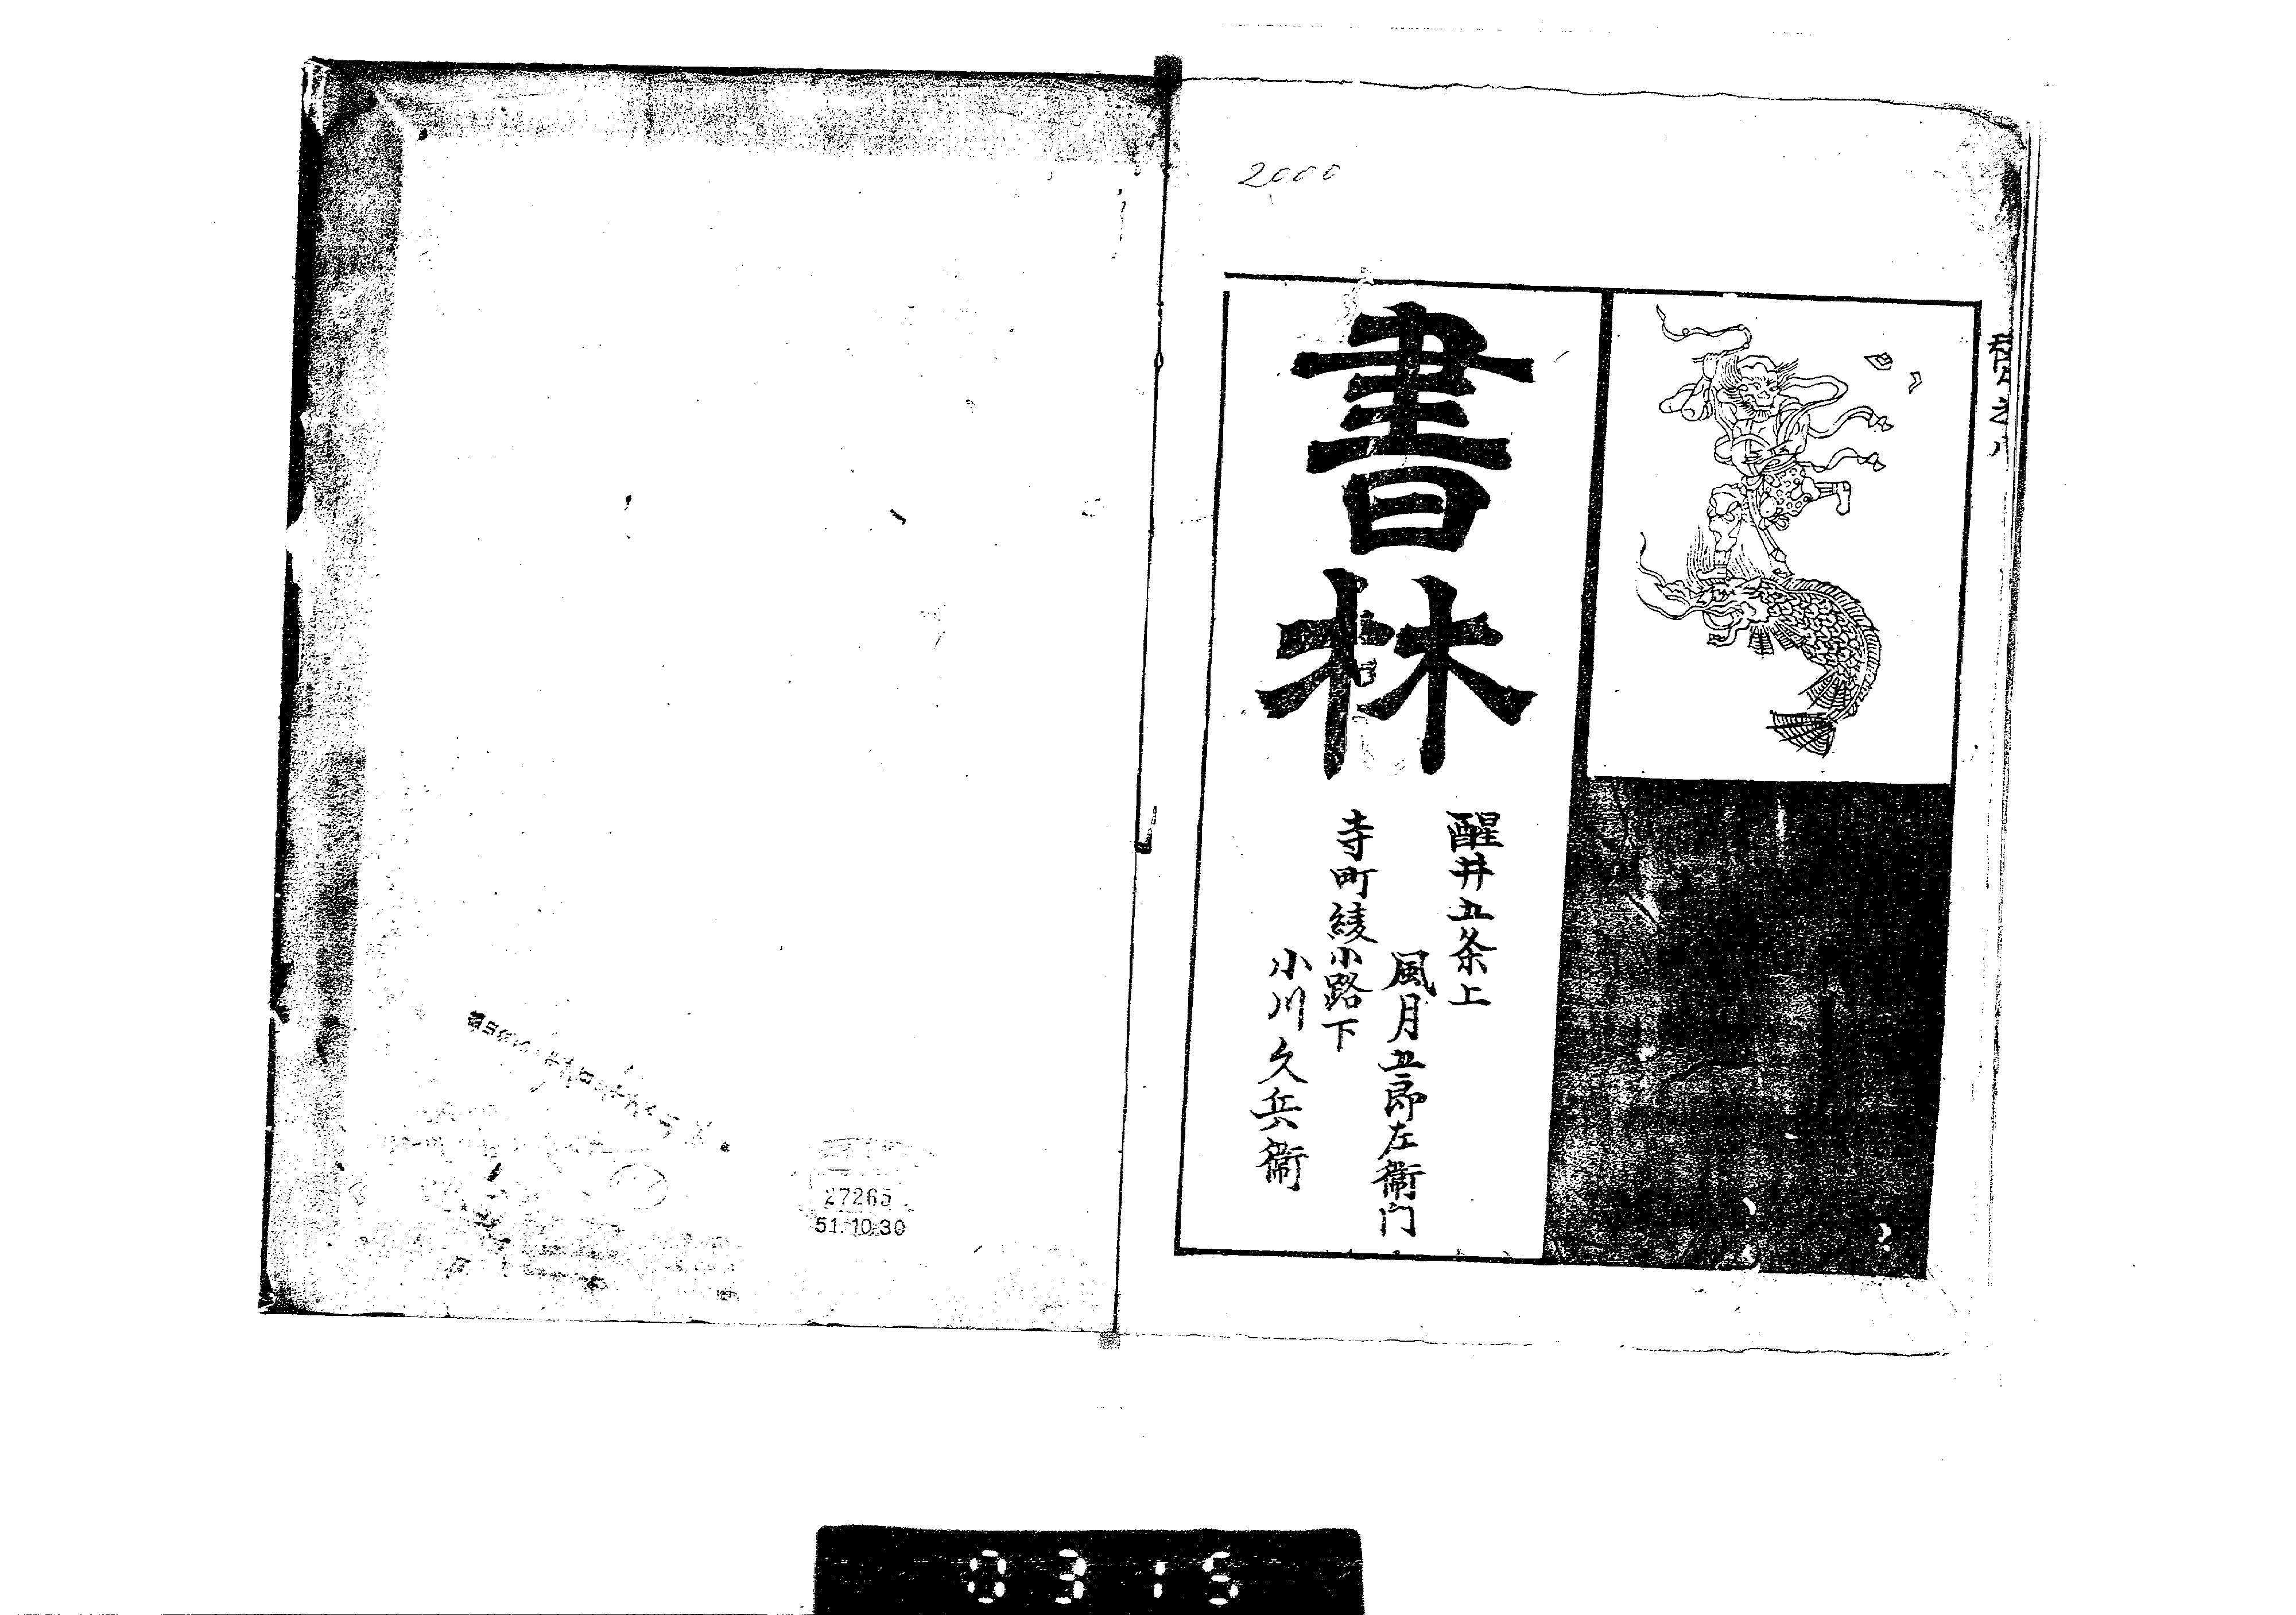 2000
書林
醒井五条上
風月五郎左衛門
寺町綾小路下
小川久兵衛
27265
51.10.30
0315